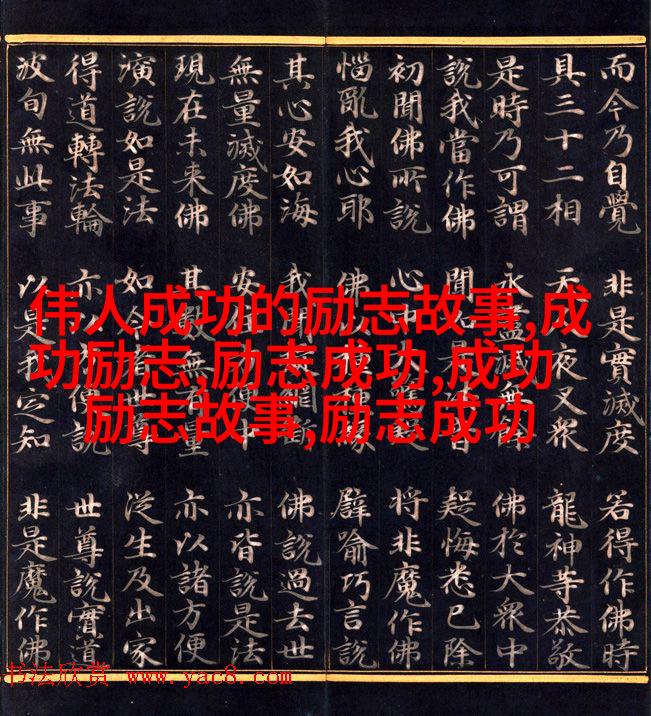 而今乃自覺 非是實滅度 若得作佛時
具三十二相 天夜叉眾 龍神等恭敬
是時乃可謂 永盡滅無餘 佛於大眾中
說我當作佛 聞是 疑悔悉已除
初聞佛所說 心中大 將非魔作佛
惱亂我心耶 佛以種 譬喻巧言說
其心安如海 我聞網斷 佛說過去世
無量滅度佛 安住便中 亦皆說是法
現在未來佛 其數無有量 亦以諸方便
演說如是法 如今者世尊 從生及出家
得道轉法輪 亦以便說 世尊說實道
波旬無此事 以是我定知 非是魔作佛
伟人成功的励志故事,成
功励志,励志成功,成功
励志故事,励志成功
书法欣赏 www.yac8.com